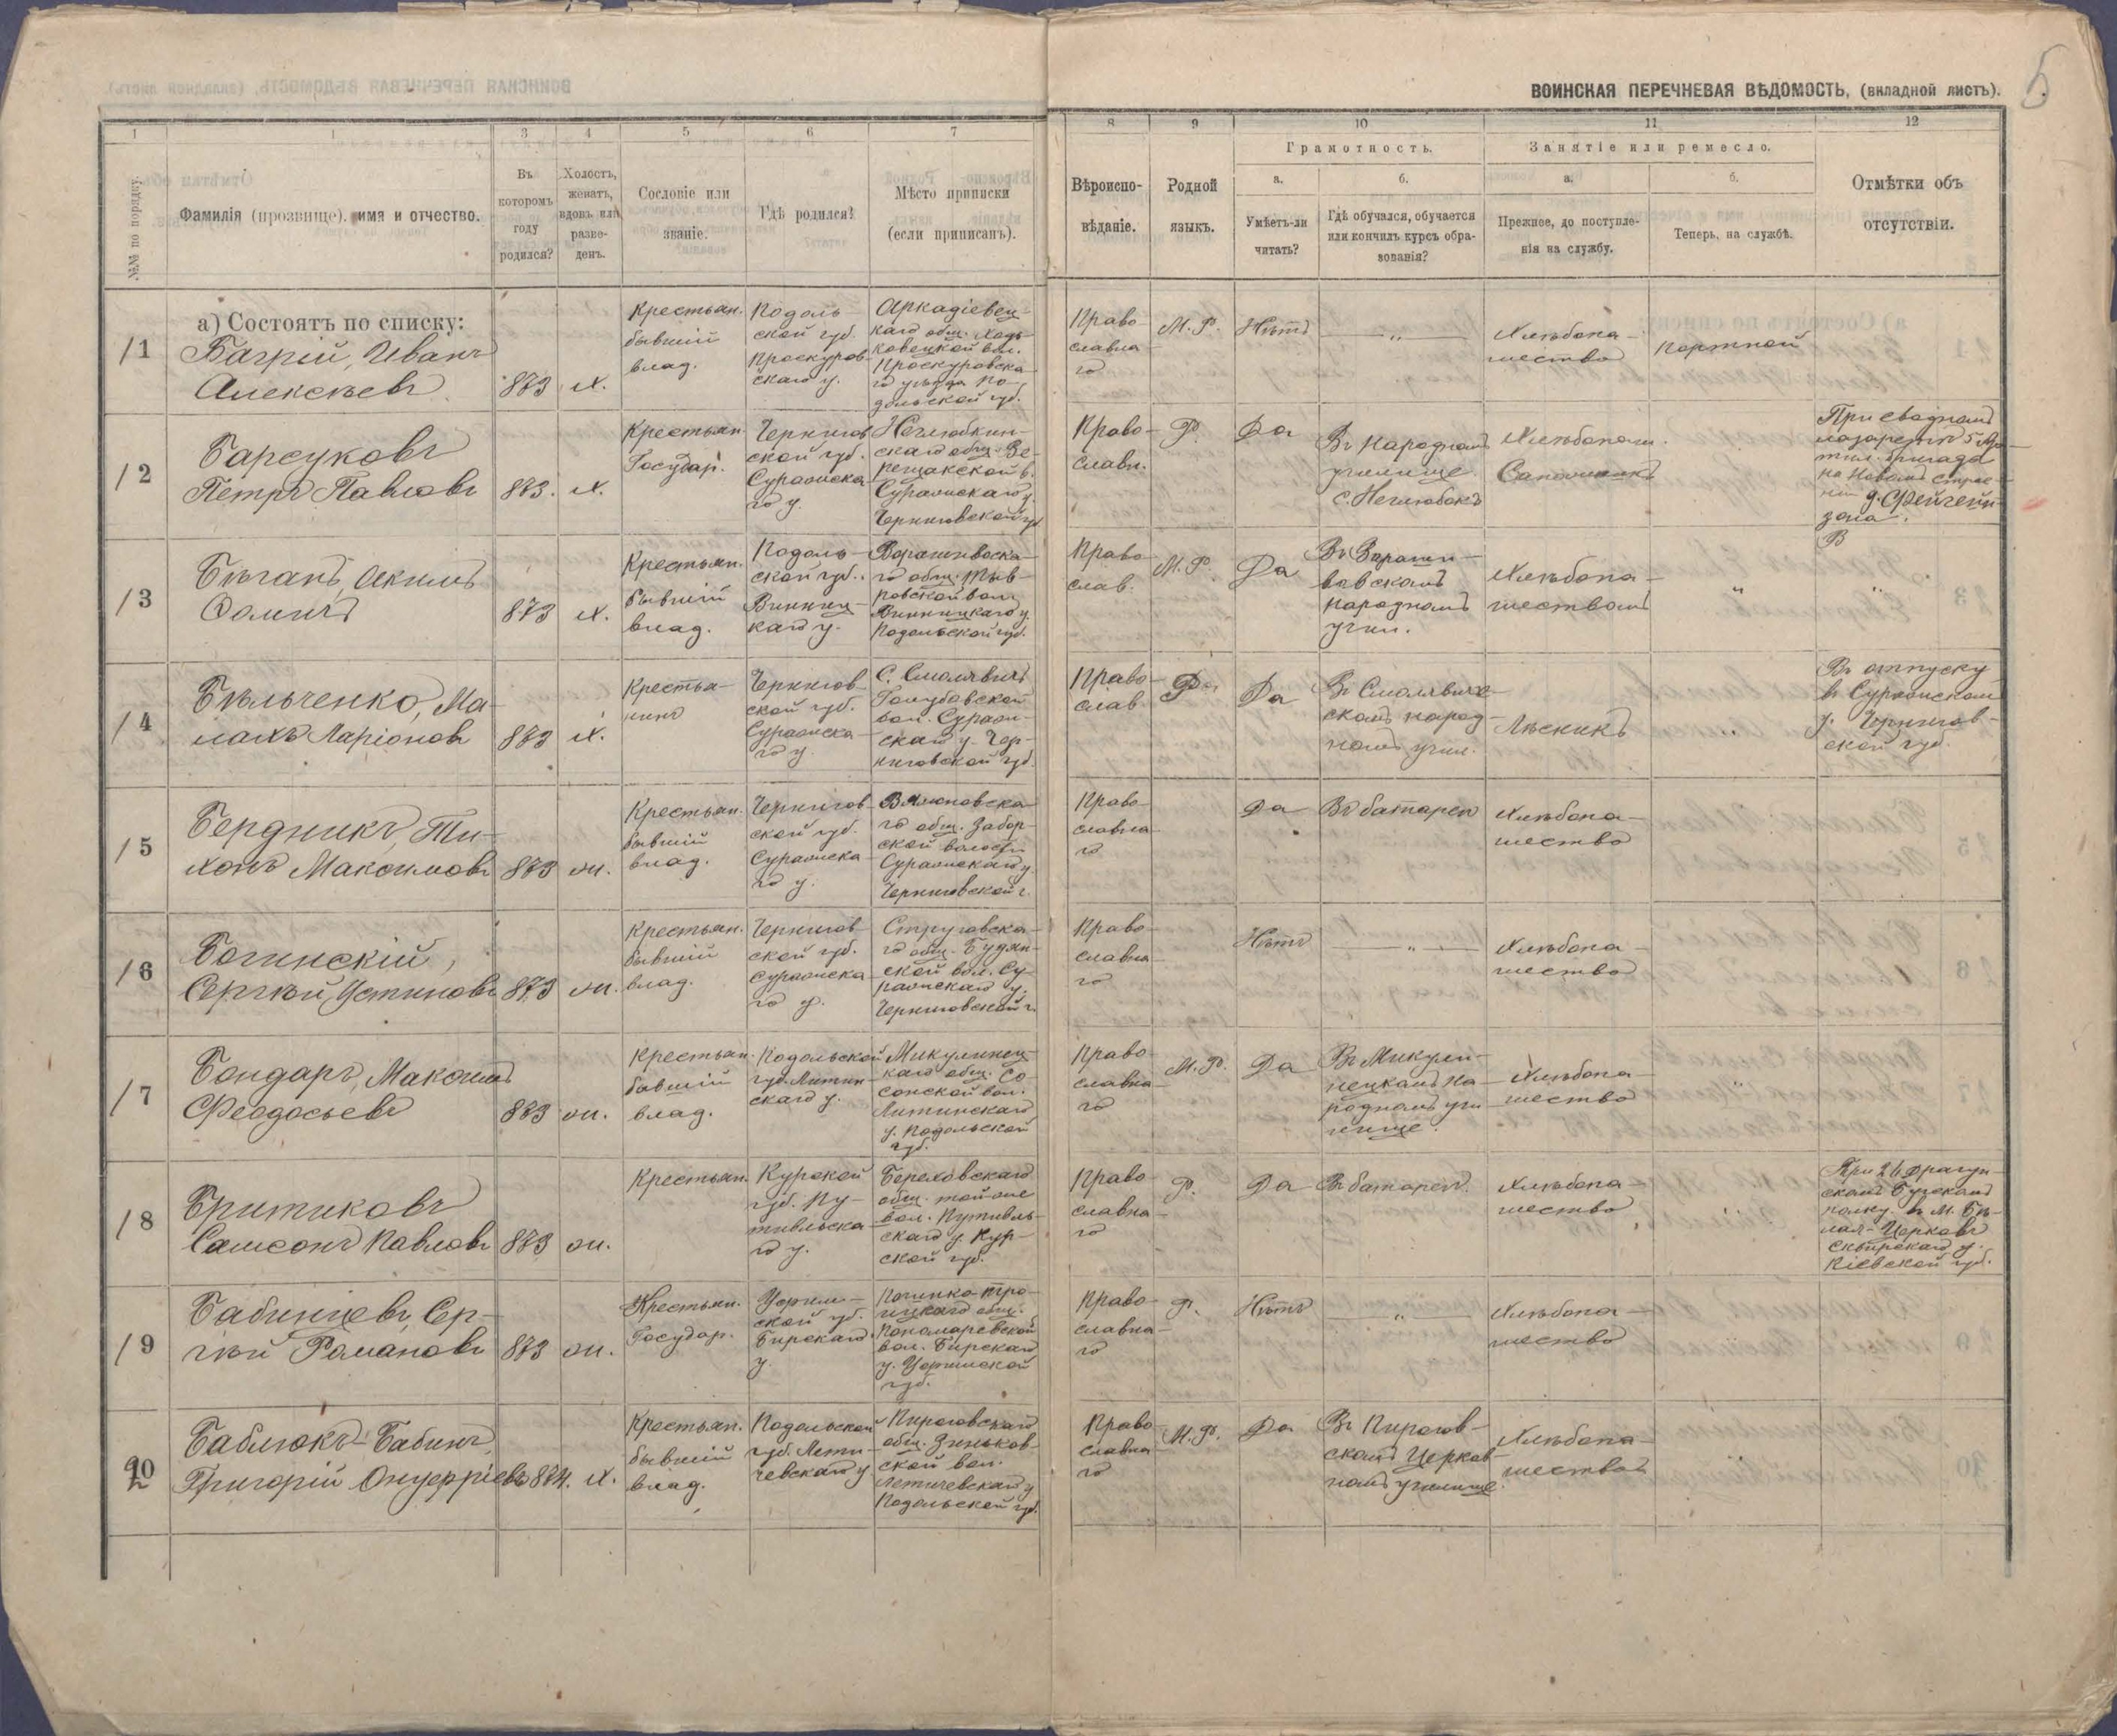 ВОИНСКАЯ ПЕРЕЧНЕВАЯ ВѢДОМОСТЬ, (вкладной листъ).
5
1 1 3 4 5 6 7 8 9 10 11 12
№№ по порядку.
Фамилія (прозвище), имя и отчество.
Въ
которомъ
году
родился?
Холостъ,
женатъ,
вдовъ или
разве-
денъ.
Сословіе или
званіе.
Гдѣ родился?
Мѣсто приписки
(если приписанъ).
Вѣроиспо-
вѣданіе.
Родной
языкъ.
Грамотность.
а.
Умѣетъ-ли
читать?
б.
Гдѣ обучался, обучается
или кончилъ курсъ обра-
зованія?
Занятіе или ремесло.
а.
Прежнее, до поступле-
нія на службу.
б.
Теперь, на службѣ.
Отмѣтки объ
отсутствіи.
а) Состоятъ по списку:
11
Багрій, Иванъ
Алексѣевъ
873
х.
Крестьян.
бывшій
влад.
Подоль-
ской губ.
Проскуров-
скаго у.
Аркадіевец-
каго общ. Ходь-
ковецкой вол.
Проскуровска-
го уѣзда По-
дольской губ.
Право-
славна-
го
М. Р.
Нѣтъ
— „ —
Хлѣбопа-
шество
портной
12
Барсуковъ
Петръ Павловъ
873.
х.
Крестьян.
Государ.
Чернигов-
ской губ.
Суражска-
го у.
Неглюбкин-
скаго общ. Ве-
рещакской в.
Суражскаго у.
Черниговской губ.
Право-
славн.
Р.
Да
Въ Народномъ
училище
с. Неглюбокъ
Хлѣбопаш.
Сапожникъ
При сводномъ
лазаретѣ 5 Ар-
тил. бригада
на Новомъ строе-
нии
зона.
В
13
Бѣганъ, Акимъ
Фоминъ
873
х.
Крестьян.
бывшій
влад.
Подоль-
ской губ.
Винниц-
каго у.
го общ. Тыв-
ровской вол.
Винницкаго у.
Подольской губ.
Право-
слав.
М. Р.
Да
народномъ
учил.
Хлѣбопа-
шествомъ
„
„
14
Бѣльченко, Ма-
лахъ Ларіоновъ
873
х.
Крестья-
нинъ
Чернигов-
ской губ.
Суражска-
го у.
С. Смолявичъ
Голубовской
вол. Сураж-
скаго у. Чер-
ниговской губ.
Право-
слав.
Р.
Да
Въ Смолявиче-
скомъ народ-
номъ учил.
Лѣсникъ
„
Въ отпуску
въ Суражскомъ
у. Чернигов-
ской губ.
15
Бердникъ, Ти-
хонъ Максимовъ
873
ж.
Крестьян.
бывшій
влад.
Чернигов-
ской губ.
Суражска-
го у.
го общ. Забор-
ской волости
Суражскаго у.
Черниговской г.
Право-
славна-
го
Да
Въ батареѣ
Хлѣбопа-
шество
16
Богинскій,
Сергѣй Устиновъ
873
ж.
Крестьян.
бывшій
влад.
Чернигов-
ской губ.
Суражска-
го у.
Струговска-
го общ. Будян-
ской вол. Су-
ражскаго у.
Черниговской г.
Право-
славна-
го
Нѣтъ
— „ —
Хлѣбопа-
шество
17
Бондаръ, Максимъ
Феодосьевъ
873
ж.
Крестьян.
бывшій
влад.
Подольской
губ. Литин-
скаго у.
Микулинец-
каго общ. Со-
сонской вол.
Литинскаго
у. Подольской
губ.
Право-
славна-
го
М. Р.
Да
Въ Микули-
нецкомъ на-
родномъ учи-
лище.
Хлѣбопа-
шество
„
18
Бритиковъ
Самсонъ Павловъ
873
ж.
Крестьян.
Курской
губ. Пу-
тивльска-
го у.
Береховскаго
общ. той-же
вол. Путивль-
скаго у. Кур-
ской губ.
Право-
славна-
го
Р.
Да
Въ батареѣ.
Хлѣбопа-
шество
„
При 26 драгун-
скомъ Бугскомъ
полку. в М. Бѣ-
лая-Церковь
Сквирскаго у.
Кіевской губ.
19
Бабинцевъ, Сер-
гѣй Романовъ
873
ж.
Крестьян.
Государ.
Уфим-
ской губ.
Бирскаго
у.
Починко-Тро-
ицкаго общ.
Пономаревской
вол. Бирскаго
у. Уфимской
губ.
Право-
славна-
го
Р.
Нѣтъ
— „ —
Хлѣбопа-
шество
20
Баблюкъ-Бабинъ,
Григорій Онуфріевъ
874.
х.
Крестьян.
бывшій
влад.
Подольской
губ. Лети-
чевскаго у.
Пироговскаго
общ. Зиньков-
ской вол.
Летичевскаго у.
Подольской губ.
Право-
славна-
го
М. Р.
Да
Въ Пирогов-
скомъ Церков-
номъ училище.
Хлѣбопа-
шество